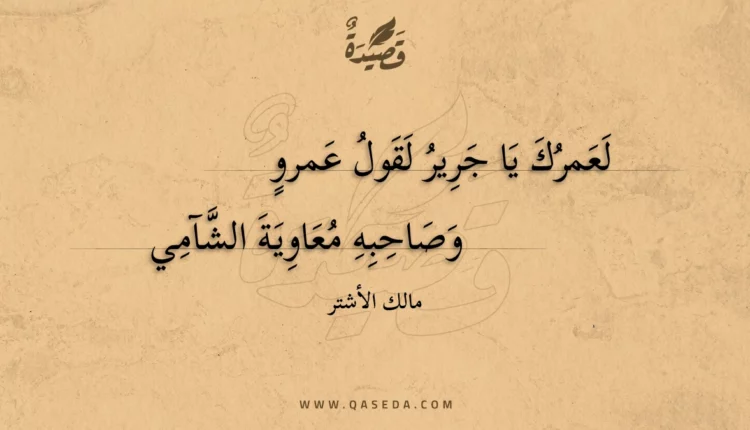 قَصِيدَةٌ
لَعَمرُكَ يَا جَرِيرُ لَقَولُ عَمروٍ
وَصَاحِبِهِ مُعَاوِيَةَ الشَّآمِي
مالك الأشتر
WWW.QASEDA.COM